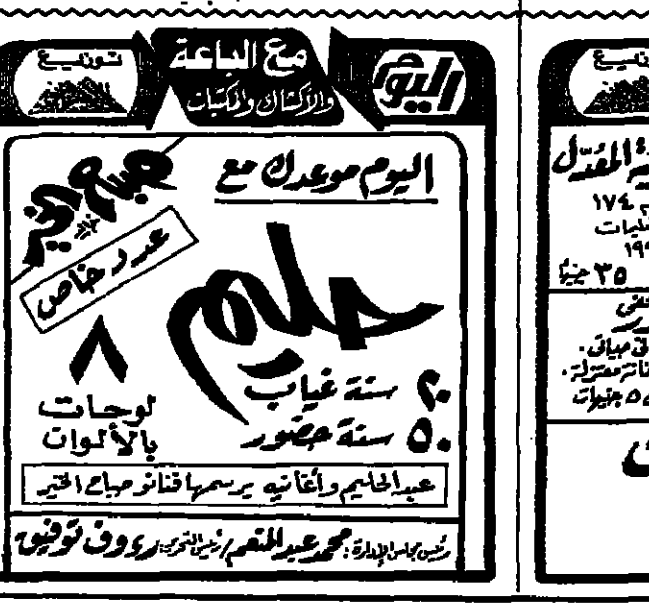 توزيع
مع الباعة
والأكشاك والمكتبات
اليوم
صباح الخير
اليوم موعدك مع
عدد خاص
حليم
٢٠ سنة غياب
٥٠ سنة حضور
٨
لوحات
بالألوان
عبدالحليم وأغانيه يرسمها فنانو صباح الخير
رئيس مجلس الإدارة: محمد عبد المنعم / رئيس التحرير: رءوف توفيق
المُعَدّل
١٧٤
٣٥ جنيها
٥ جنيهات